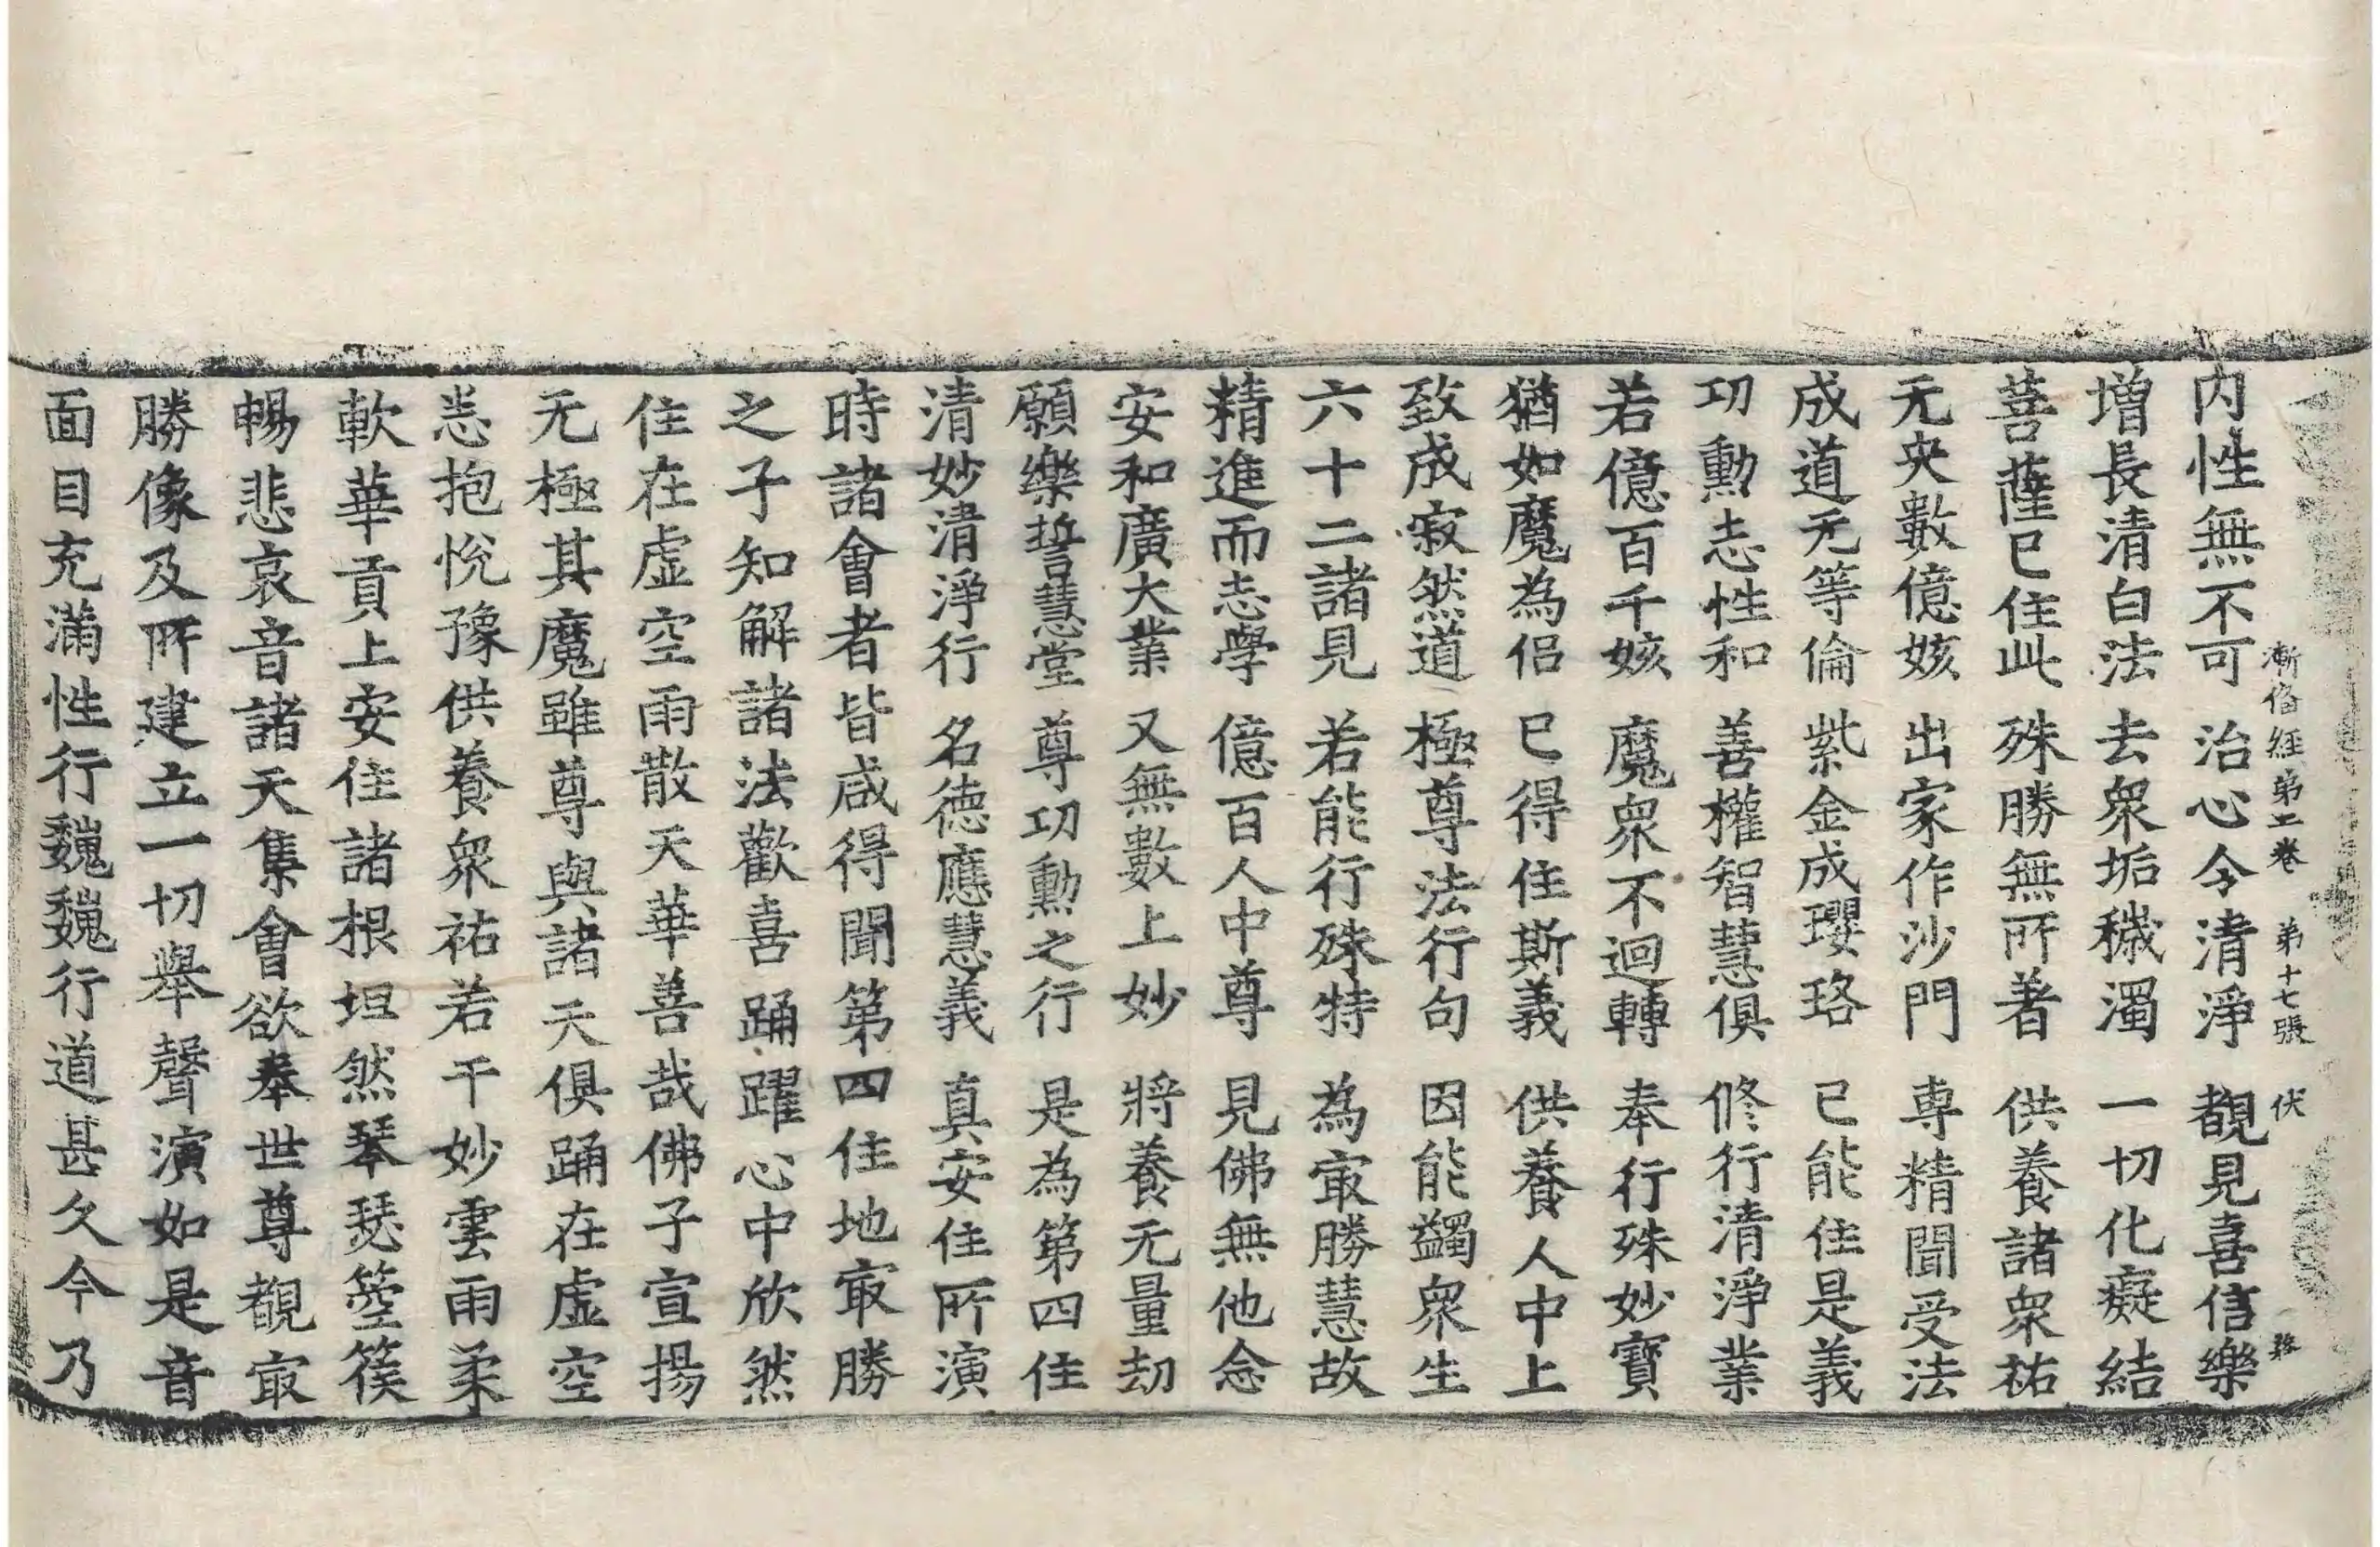 漸俻經第二卷 第十七張 伏
内性無不可 治心令清淨 覩見喜信樂
增長清白法 去衆垢穢濁 一切化癡結
菩薩已住此 殊勝無所著 供養諸衆祐
无央數億姟 出家作沙門 専精聞受法
成道无等倫 紫金成瓔珞 已能住是義
功勲志性和 善權智慧俱 修行清淨業
若億百千姟 魔衆不迴轉 奉行殊妙寶
猶如魔為侣 已得住斯義 供養人中上
致成寂然道 極尊法行句 因能蠲衆生
六十二諸見 若能行殊特 為㝡勝慧故
精進而志學 億百人中尊 見佛無他念
安和廣大業 又無數上妙 將養无量劫
願樂誓慧堂 尊功勲之行 是為第四住
清妙清淨行 名德應慧義 真安住所演
時諸會者皆咸得聞第四住地㝡勝
之子知解諸法歡喜踊躍心中欣然
住在虚空雨散天華善哉佛子宣揚
无極其魔雖尊與諸天俱踊在虚空
恙抱悅豫供養衆祐若干妙雲雨柔
軟華貢上安住諸根坦然琴瑟箜篌
暢悲哀音諸天集會欲奉世尊覩㝡
勝像及所建立一切舉聲演如是音
面目充滿性行巍巍行道甚久今乃